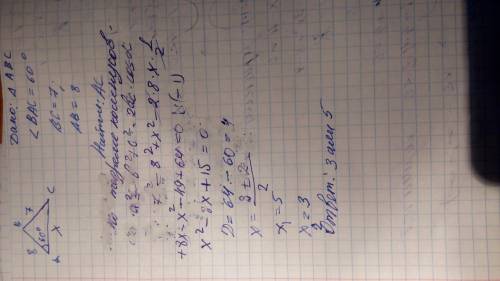 Дано: △ ABC
∠BAC = 60°
BC = 7
AB = 8
Найти: AC
По теореме косинусов:
a² = b² + c² - 2bc·cosα
7² = 8² + x² - 2·8·x·1/2
+8x - x² - 49 + 64 = 0 |:(-1)
x² - 8x + 15 = 0
D = 64 - 60 = 4
x = 8 ± 2 / 2
x₁ = 5
x₂ = 3
Ответ: 3 или 5
8
7
C
60°
x